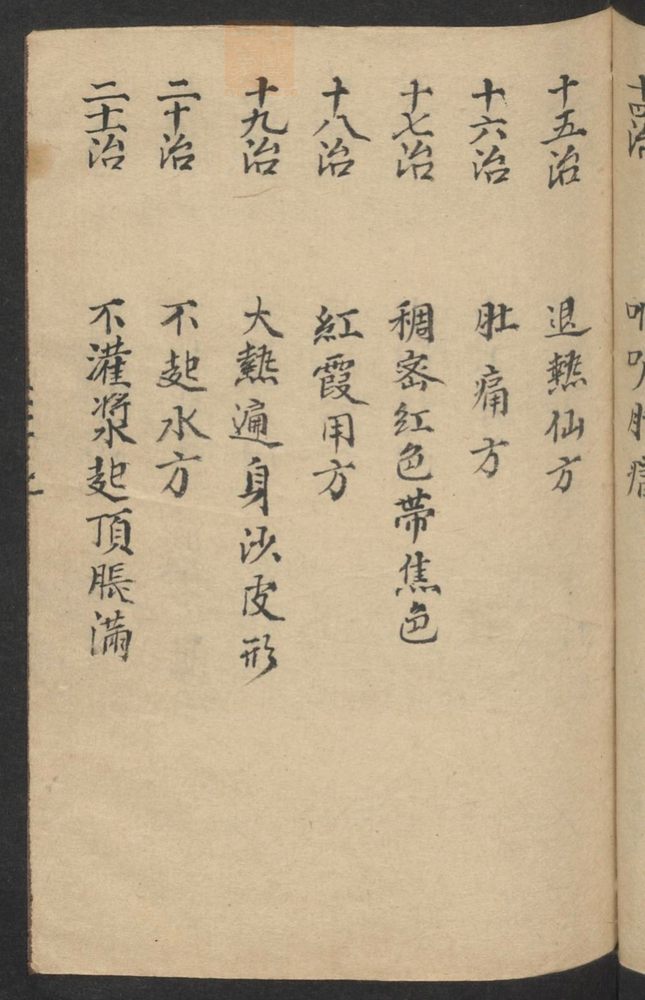 十四治
十五治 退熱仙方
十六治 肚痛方
十七治 稠密红色帶焦色
十八治 紅霞用方
十九治 大熱遍身沙皮形
二十治 不起水方
二十一治 不灌漿起頂脹滿